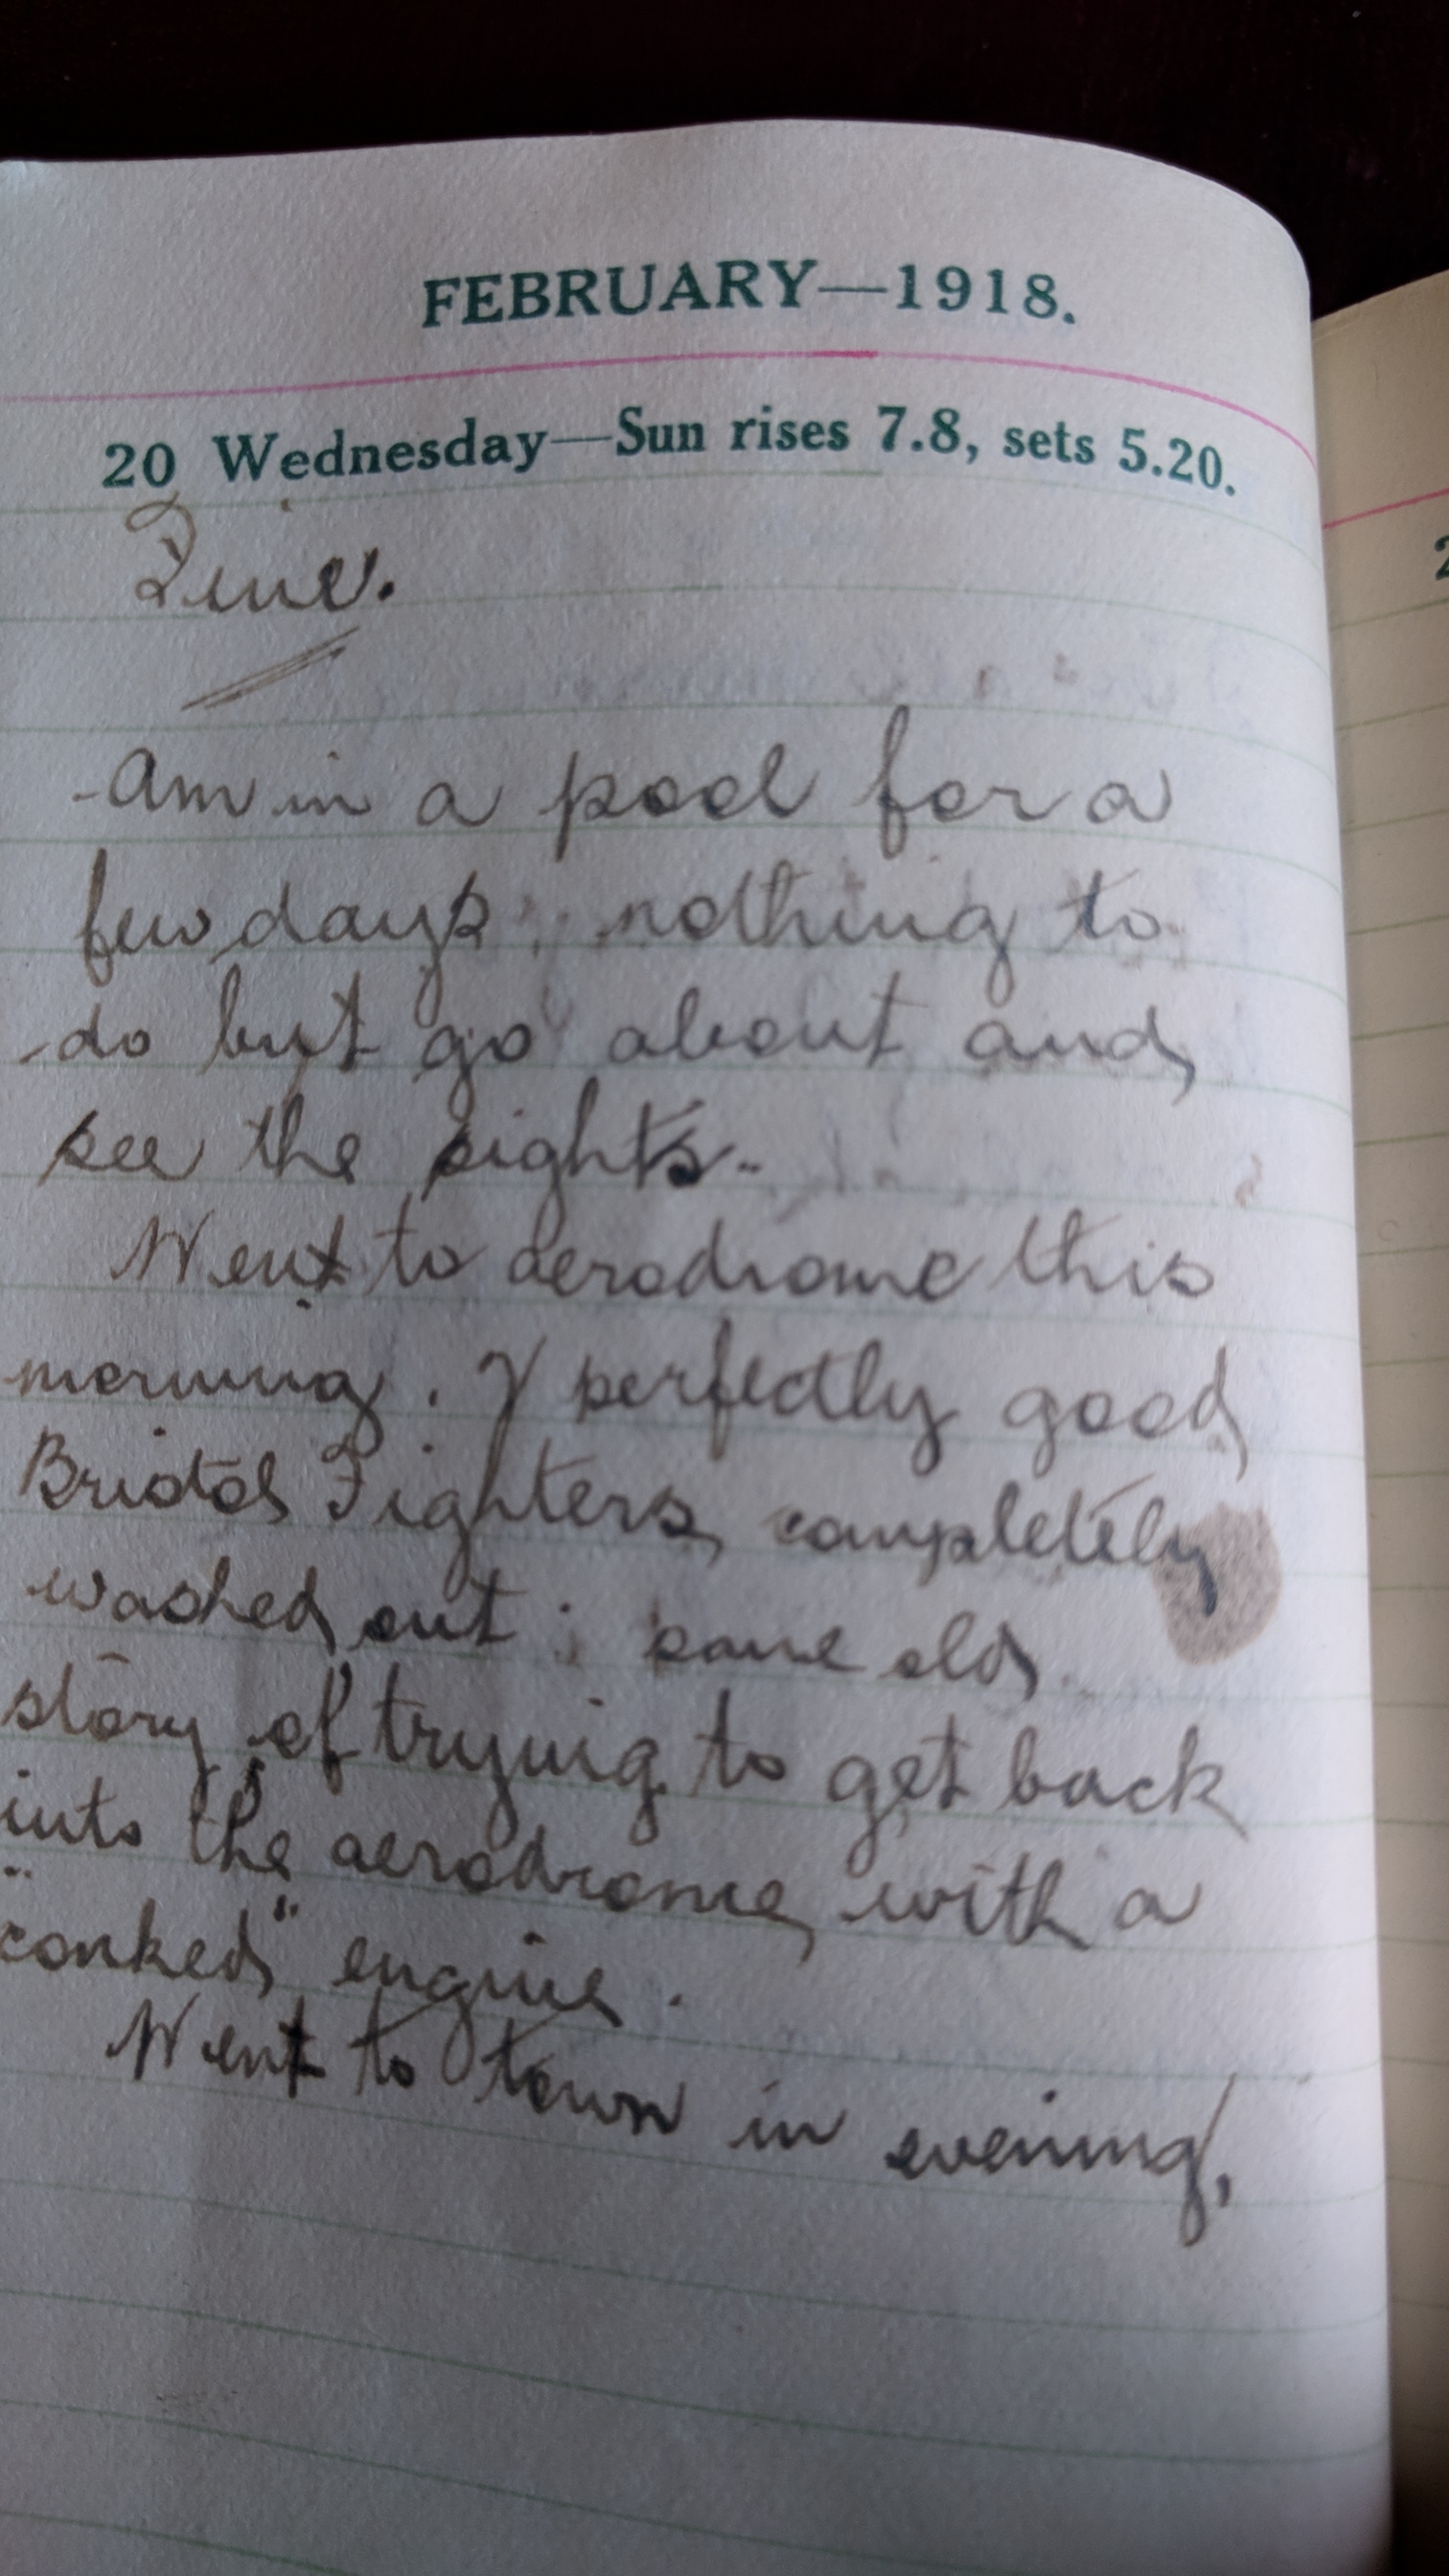 FEBRUARY—1918.
20 Wednesday—Sun rises 7.8, sets 5.20.
Fine.
Am in a pool for a
few days; nothing to
do but go about and
see the sights.
Went to aerodrome this
morning. perfectly good
Bristol Fighters completely
washed out; same old
story of trying to get back
into the aerodrome with a
"conked" engine.
Went to town in evening,
2